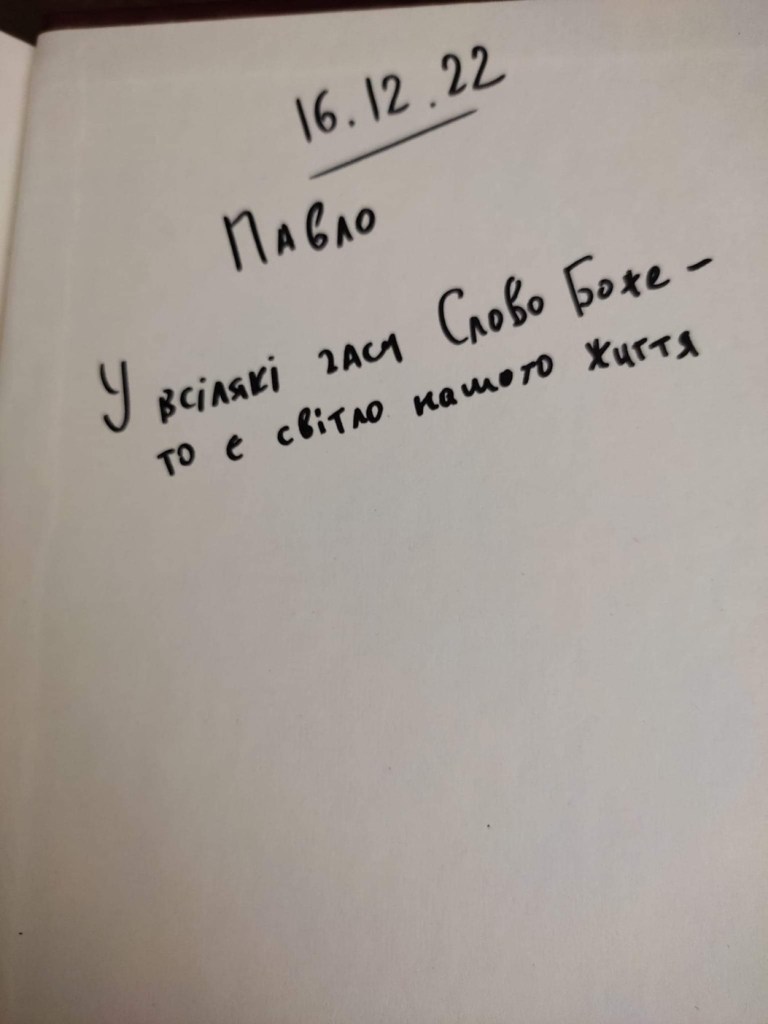 16.12.22
Павло
У всілякі часи Слово Боже -
то є світло нашого життя